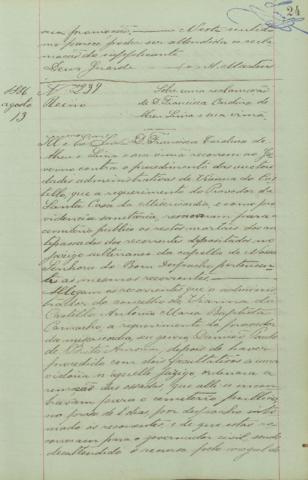 24
sua promoção. Neste sentido
me parece poder ser attendida a recla
mação do supplicante
Deus Guarde M. Martens
1886
agosto
13
N. 2239
Reino
Sobre uma reclamação
de D. Francisca Cardina de
Abreu e Lima e sua irmã
D. Francisca Cardina de
Abreu e Lima e sua irmã recorrem ao Go
verno contra o procedimento das auctori
dades administrativas de Vianna do Cas
tello, que a requerimento do Provedor da
Santa Casa da Misericordia, e como pro
videncia sanitaria, removeram para o
cemiterio publico os restos mortaes dos an
tepassados das recorrentes depositados no
jazigo subterraneo da capella de Nossa
Senhora do Bom Despacho pertencente
as mesmas recorrentes.
Allegam as recorrentes que o adminis
trador do concelho de Vianna do
Castello Antonio Maria Baptista
Camacho, a requerimento do provedor
da misericordia, depois de haver
procedido com dois facultativos a uma
vistoria n'aquelle jazigo, ordenara a
remoção das ossadas que alli se encon
travam para o cemiterio publico,
no praso de 8 dias, por despacho inti
mado ás recorrentes, e de que estas re
correram para o governador civil, sendo
desattendido o recurso pelo magis